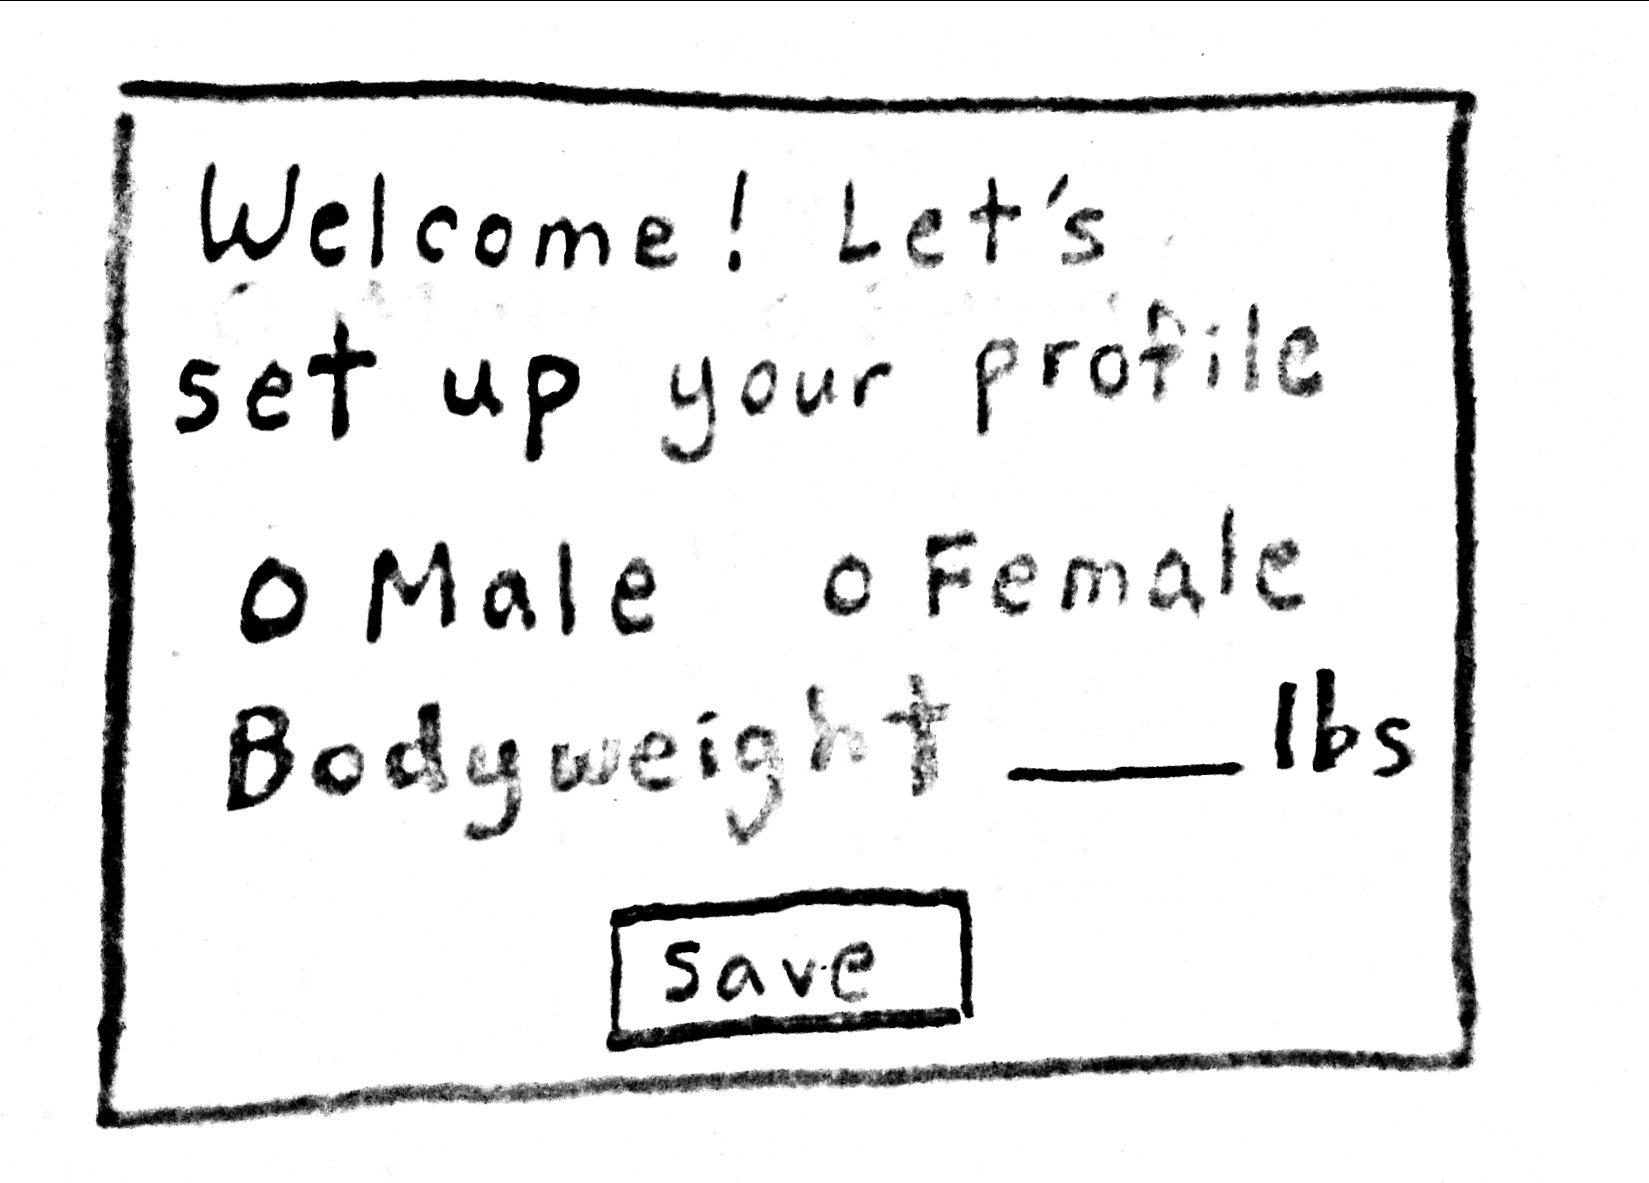 Welcome! Let's
set up your profile
o Male o Female
Bodyweight ____ lbs
Save